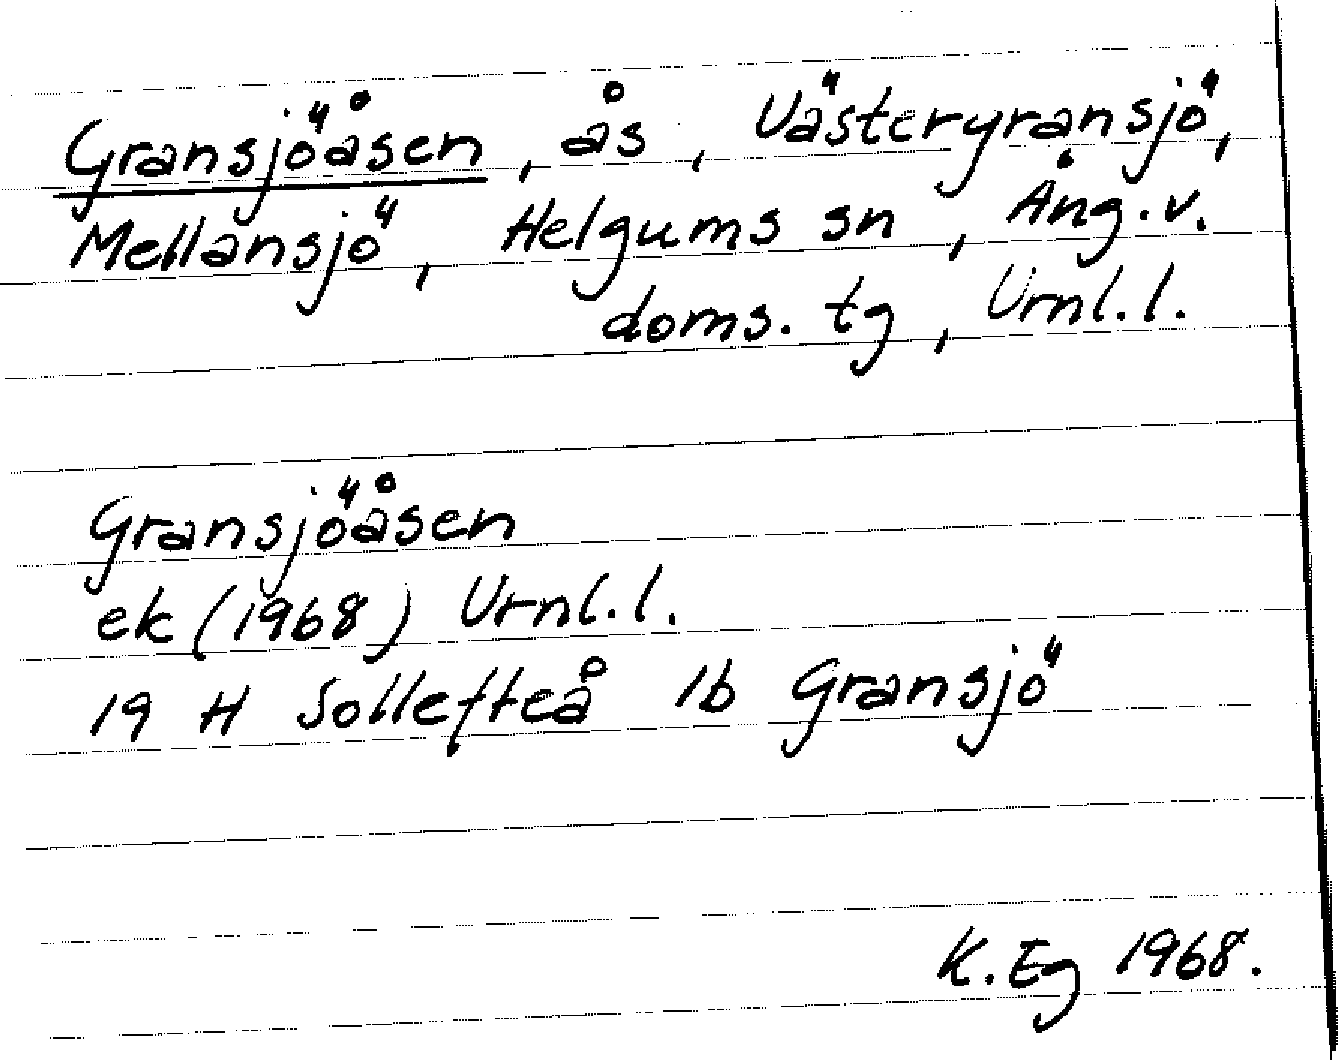 Gransjöåsen, ås, Västergransjö,
Mellansjö, Helgums sn, Ång.v.
doms. tg, Vrnl.l.
Gransjöåsen
ek (1968) Vrnl.l.
19 H Sollefteå 1b Gransjö
K. Eg 1968.